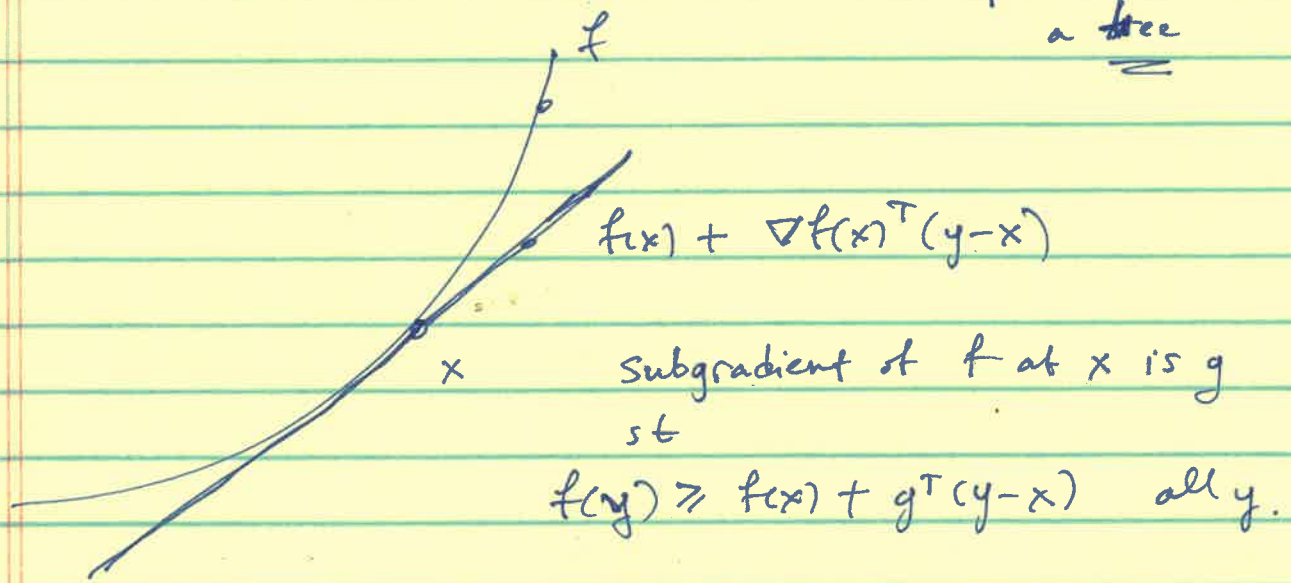 a tree
f
f(x) + ∇f(x)ᵀ(y-x)
x
Subgradient of f at x is g
st
f(y) ≥ f(x) + gᵀ(y-x) all y.